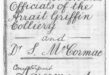 Officials of the
Arrail Griffin
Colliery
and
Dr S McCormac